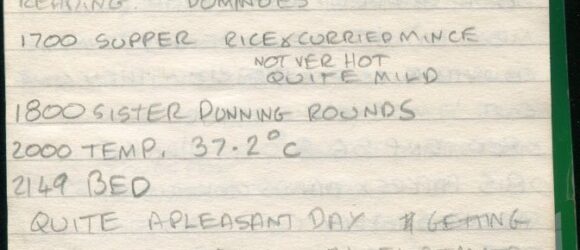 READING. DOMINOES
1700 SUPPER RICE & CURRIED MINCE
NOT VER HOT
QUITE MILD
1800 SISTER DUNNING ROUNDS
2000 TEMP. 37.2°C
2149 BED
QUITE A PLEASANT DAY GETTING